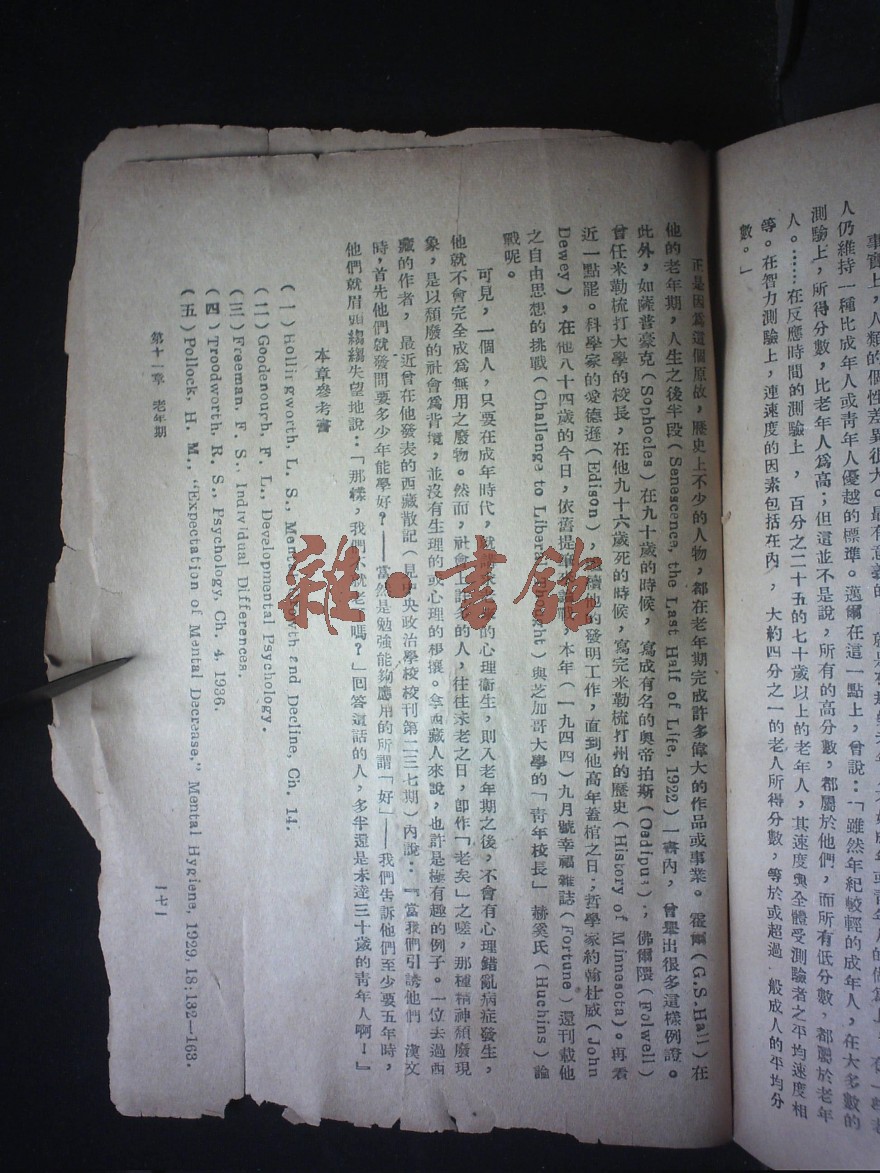 人仍維持一種比成年人或青年人優越的標準。邁爾在這一點上，曾說：「雖然年紀較輕的成年人，在大多數的
測驗上，所得分數，比老年人爲高；但這並不是說，所有的高分數，都屬於他們，而所有低分數，都屬於老年
人。……在反應時間的測驗上，百分之二十五的七十歲以上的老年人，其速度與全體受測驗者之平均速度相
等。在智力測驗上，連速度的因素包括在內，大約四分之一的老人所得分數，等於或超過一般成人的平均分
數。」
正是因爲這個原故，歷史上不少的人物，都在老年期完成許多偉大的作品或事業。霍爾（G.S.Hall）在
他的老年期，人生之後半段（Senescence, the Last Half of Life, 1922）一書內，曾舉出很多這樣例證。
此外，如薩普豪克（Sophocles）在九十歲的時候，寫成有名的奧帝拍斯（Oedipus），佛爾隈（Folwell）
曾任米勒梳打大學的校長，在他九十六歲死的時候，寫完米勒梳打州的歷史（History of Minnesota）。再看
近一點罷。科學家的愛德遜（Edison），繼續他的發明工作，直到他高年蓋棺之日；哲學家約翰杜威（John
Dewey），在他八十四歲的今日，依舊提，本年（一九四四）九月號幸福雜誌（Fortune）還刊載他
之自由思想的挑戰（Challenge to Liberal Thought）與芝加哥大學的「靑年校長」赫奚氏（Huchins）論
戰呢。
可見，一個人，只要在成年時代，的心理衞生，則入老年期之後，不會有心理錯亂病症發生，
他就不會完全成爲無用之廢物。然而，社會上許多的人，往往未老之日，卽作「老矣」之嗟，那種精神頹廢現
象，是以頹廢的社會爲背境，並沒有生理的或心理的根據。拿西藏人來說，也許是極有趣的例子。一位去過西
藏的作者，最近曾在他發表的西藏散記（見中央政治學校校刊第二三七期）內說：『當我們引誘他們 漢文
時，首先他們就發問要多少年能學好？——當然是勉強能夠應用的所謂「好」——我們告訴他們至少要五年時，
他們就眉頭縐縐失望地說：「那樣，我們不就老了嗎？」回答這話的人，多半還是未達三十歲的靑年人啊！』
本章參考書
（一）Hollingworth, L. S., Mental Growth and Decline, Ch. 14.
（二）Goodenough, F. L., Developmental Psychology.
（三）Freeman, F. S., Individual Differences.
（四）Troodworth, R. S., Psychology, Ch. 4, 1936.
（五）Pollock, H. M., "Expectation of Mental Decrease," Mental Hygiene, 1929, 18:132—163.
第十一章 老年期
一七一
雜·書館